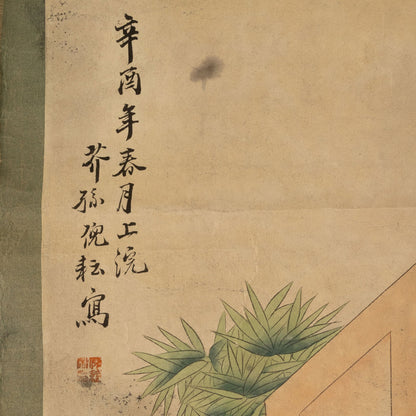 辛酉年春月上浣
芥孫倪耘寫